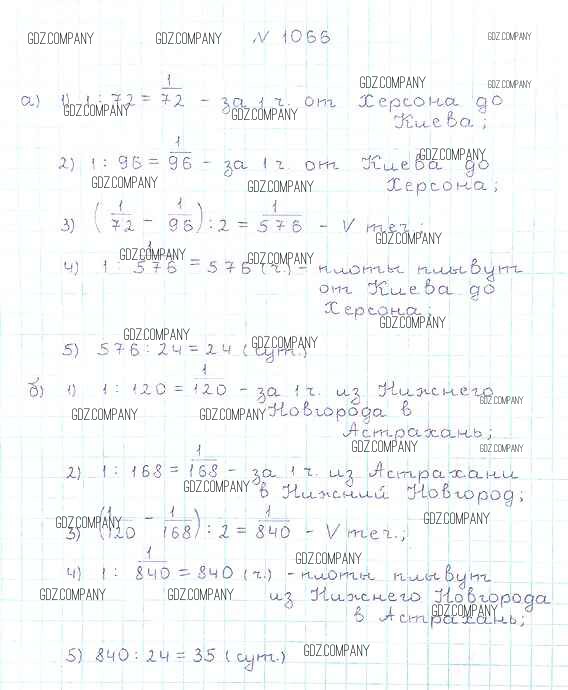 GDZ.COMPANY GDZ.COMPANY № 1066 GDZ.COMPANY
GDZ.COMPANY GDZ.COMPANY
а) 1) 1 : 72 = 1/72 - за 1 ч. от Херсона до
GDZ.COMPANY GDZ.COMPANY
Киева;
2) 1 : 96 = 1/96 - за 1 ч. от Киева до
GDZ.COMPANY
GDZ.COMPANY GDZ.COMPANY
Херсона;
3) (1/72 - 1/96) : 2 = 1/576 - V теч.;
GDZ.COMPANY
GDZ.COMPANY GDZ.COMPANY
4) 1 : 1/576 = 576 (ч.) - плоты плывут
от Киева до
Херсона;
GDZ.COMPANY
GDZ.COMPANY GDZ.COMPANY
5) 576 : 24 = 24 (сут.)
б) 1) 1 : 120 = 1/120 - за 1 ч. из Нижнего
GDZ.COMPANY
GDZ.COMPANY GDZ.COMPANY Новгорода в
Астрахань;
GDZ.COMPANY GDZ.COMPANY
2) 1 : 168 = 1/168 - за 1 ч. из Астрахани
GDZ.COMPANY в Нижний Новгород;
GDZ.COMPANY GDZ.COMPANY
3) (1/120 - 1/168) : 2 = 1/840 - V теч.;
GDZ.COMPANY
4) 1 : 1/840 = 840 (ч.) - плоты плывут
GDZ.COMPANY GDZ.COMPANY из Нижнего Новгорода
GDZ.COMPANY
в Астрахань;
5) 840 : 24 = 35 (сут.) GDZ.COMPANY